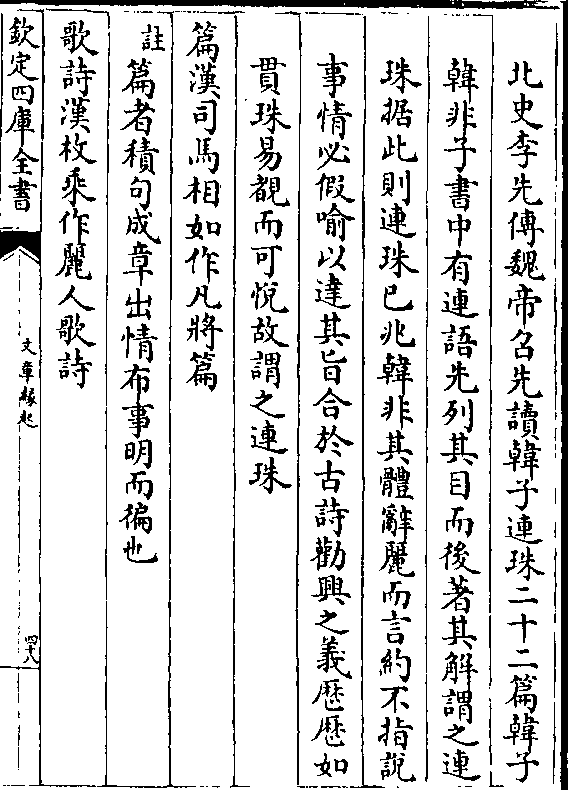 北史李先傳魏帝召先讀韓子連珠二十二篇韓子
韓非子書中有連語先列其目而後著其解謂之連
珠據此則連珠已兆韓非其體辭麗而言約不指說
事情必假喻以達其旨合於古詩勸興之義歷歷如
貫珠易覩而可悅故謂之連珠
篇漢司馬相如作凡將篇
註篇者積句成章出情布事明而徧也
歌詩漢枚乘作麗人歌詩
欽定四庫全書
文章緣起
四十八